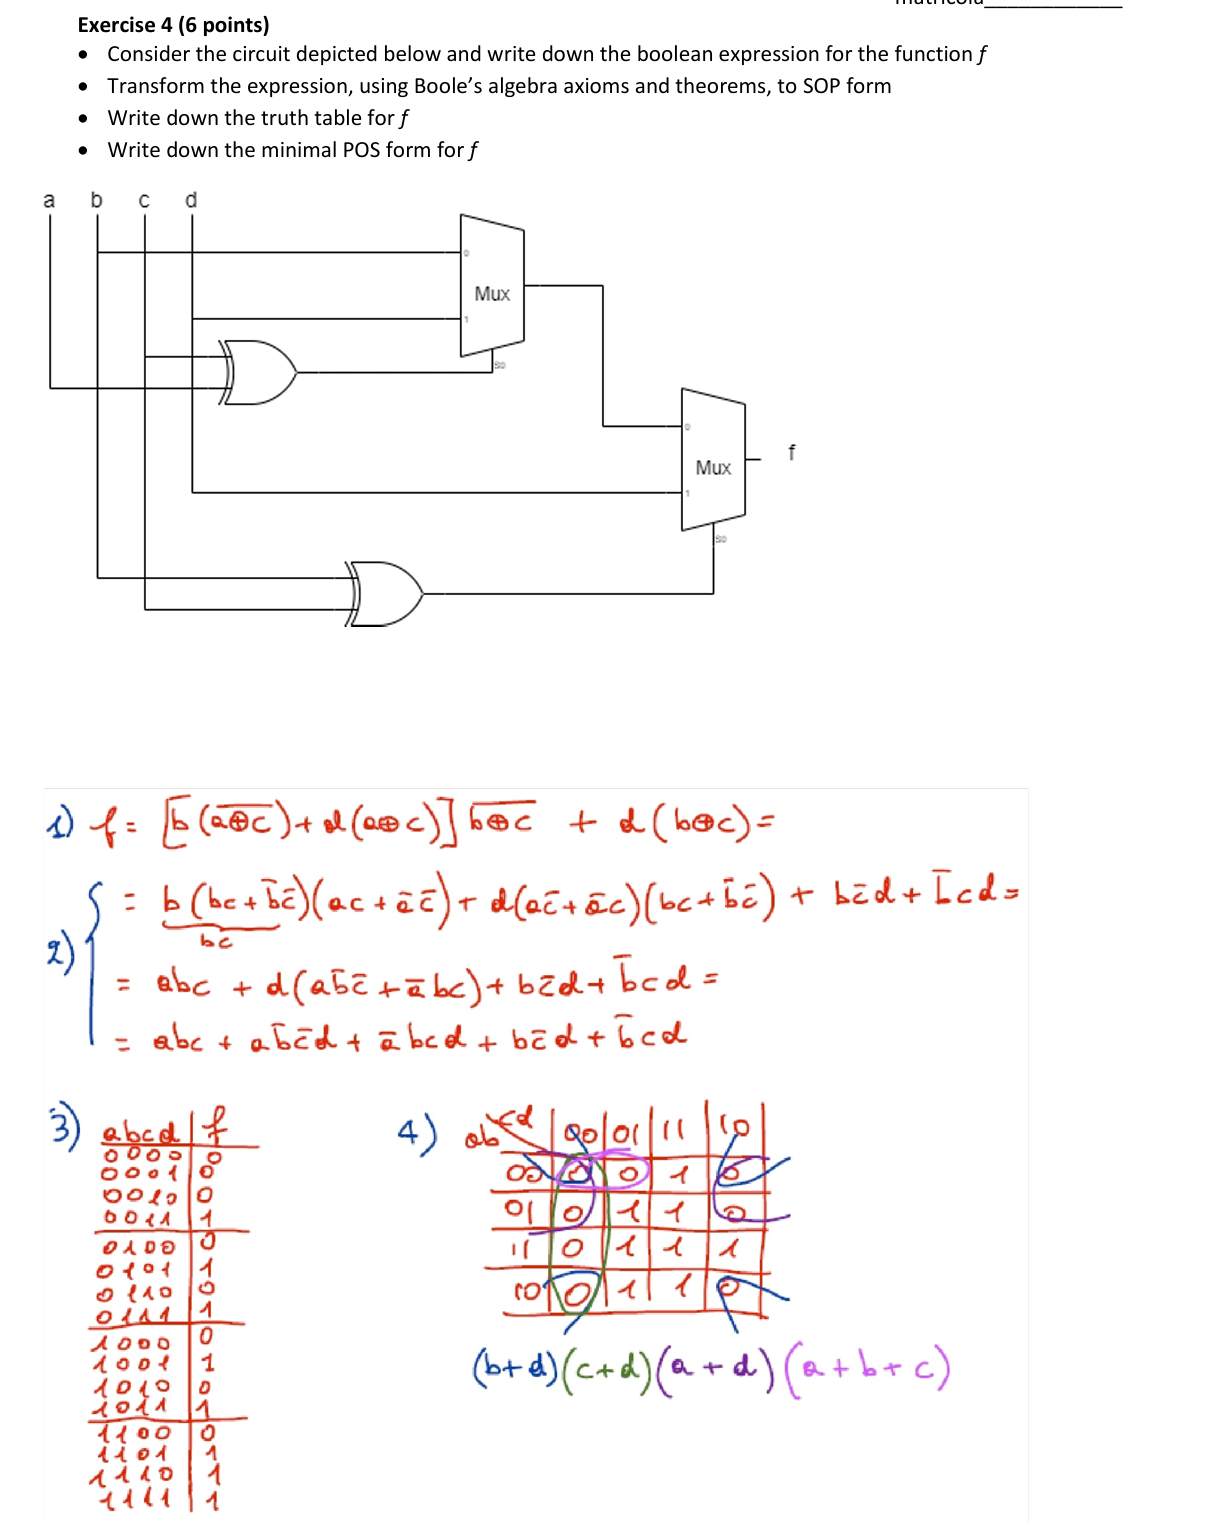 matricola____________
Exercise 4 (6 points)
• Consider the circuit depicted below and write down the boolean expression for the function f
• Transform the expression, using Boole's algebra axioms and theorems, to SOP form
• Write down the truth table for f
• Write down the minimal POS form for f
a b c d
0
Mux
1
S0
0
Mux
f
1
S0
1) f = [b(a̅⊕̅c̅) + d(a⊕c)] b̅⊕̅c̅ + d(b⊕c) =
2)
= b(bc + b̅c̅)(ac + a̅c̅) + d(ac̅ + a̅c)(bc + b̅c̅) + bc̅d + b̅cd =
bc
= abc + d(ab̅c̅ + a̅bc) + bc̅d + b̅cd =
= abc + ab̅c̅d + a̅bcd + bc̅d + b̅cd
3) abcd f
0000 0
0001 0
0010 0
0011 1
0100 0
0101 1
0110 0
0111 1
1000 0
1001 1
1010 0
1011 1
1100 0
1101 1
1110 1
1111 1
4) ab cd 00 01 11 10
00 0 0 1 0
01 0 1 1 0
11 0 1 1 1
10 0 1 1 0
(b+d)(c+d)(a+d)(a+b+c)